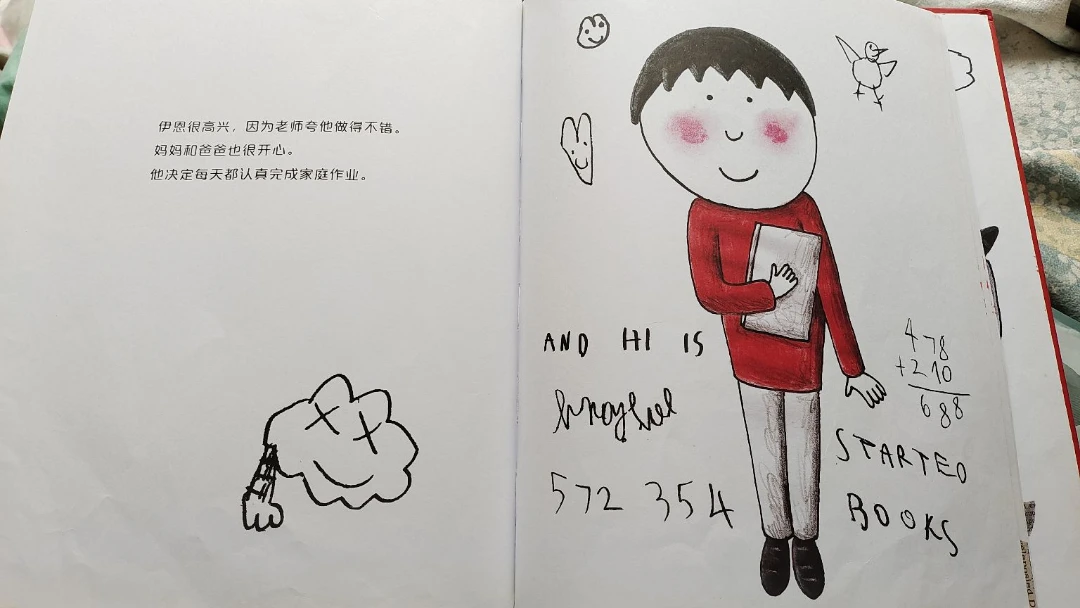 伊恩很高兴，因为老师夸他做得不错。
妈妈和爸爸也很开心。
他决定每天都认真完成家庭作业。
AND HI IS
572 354
478
+210
688
STARTED
BOOKS